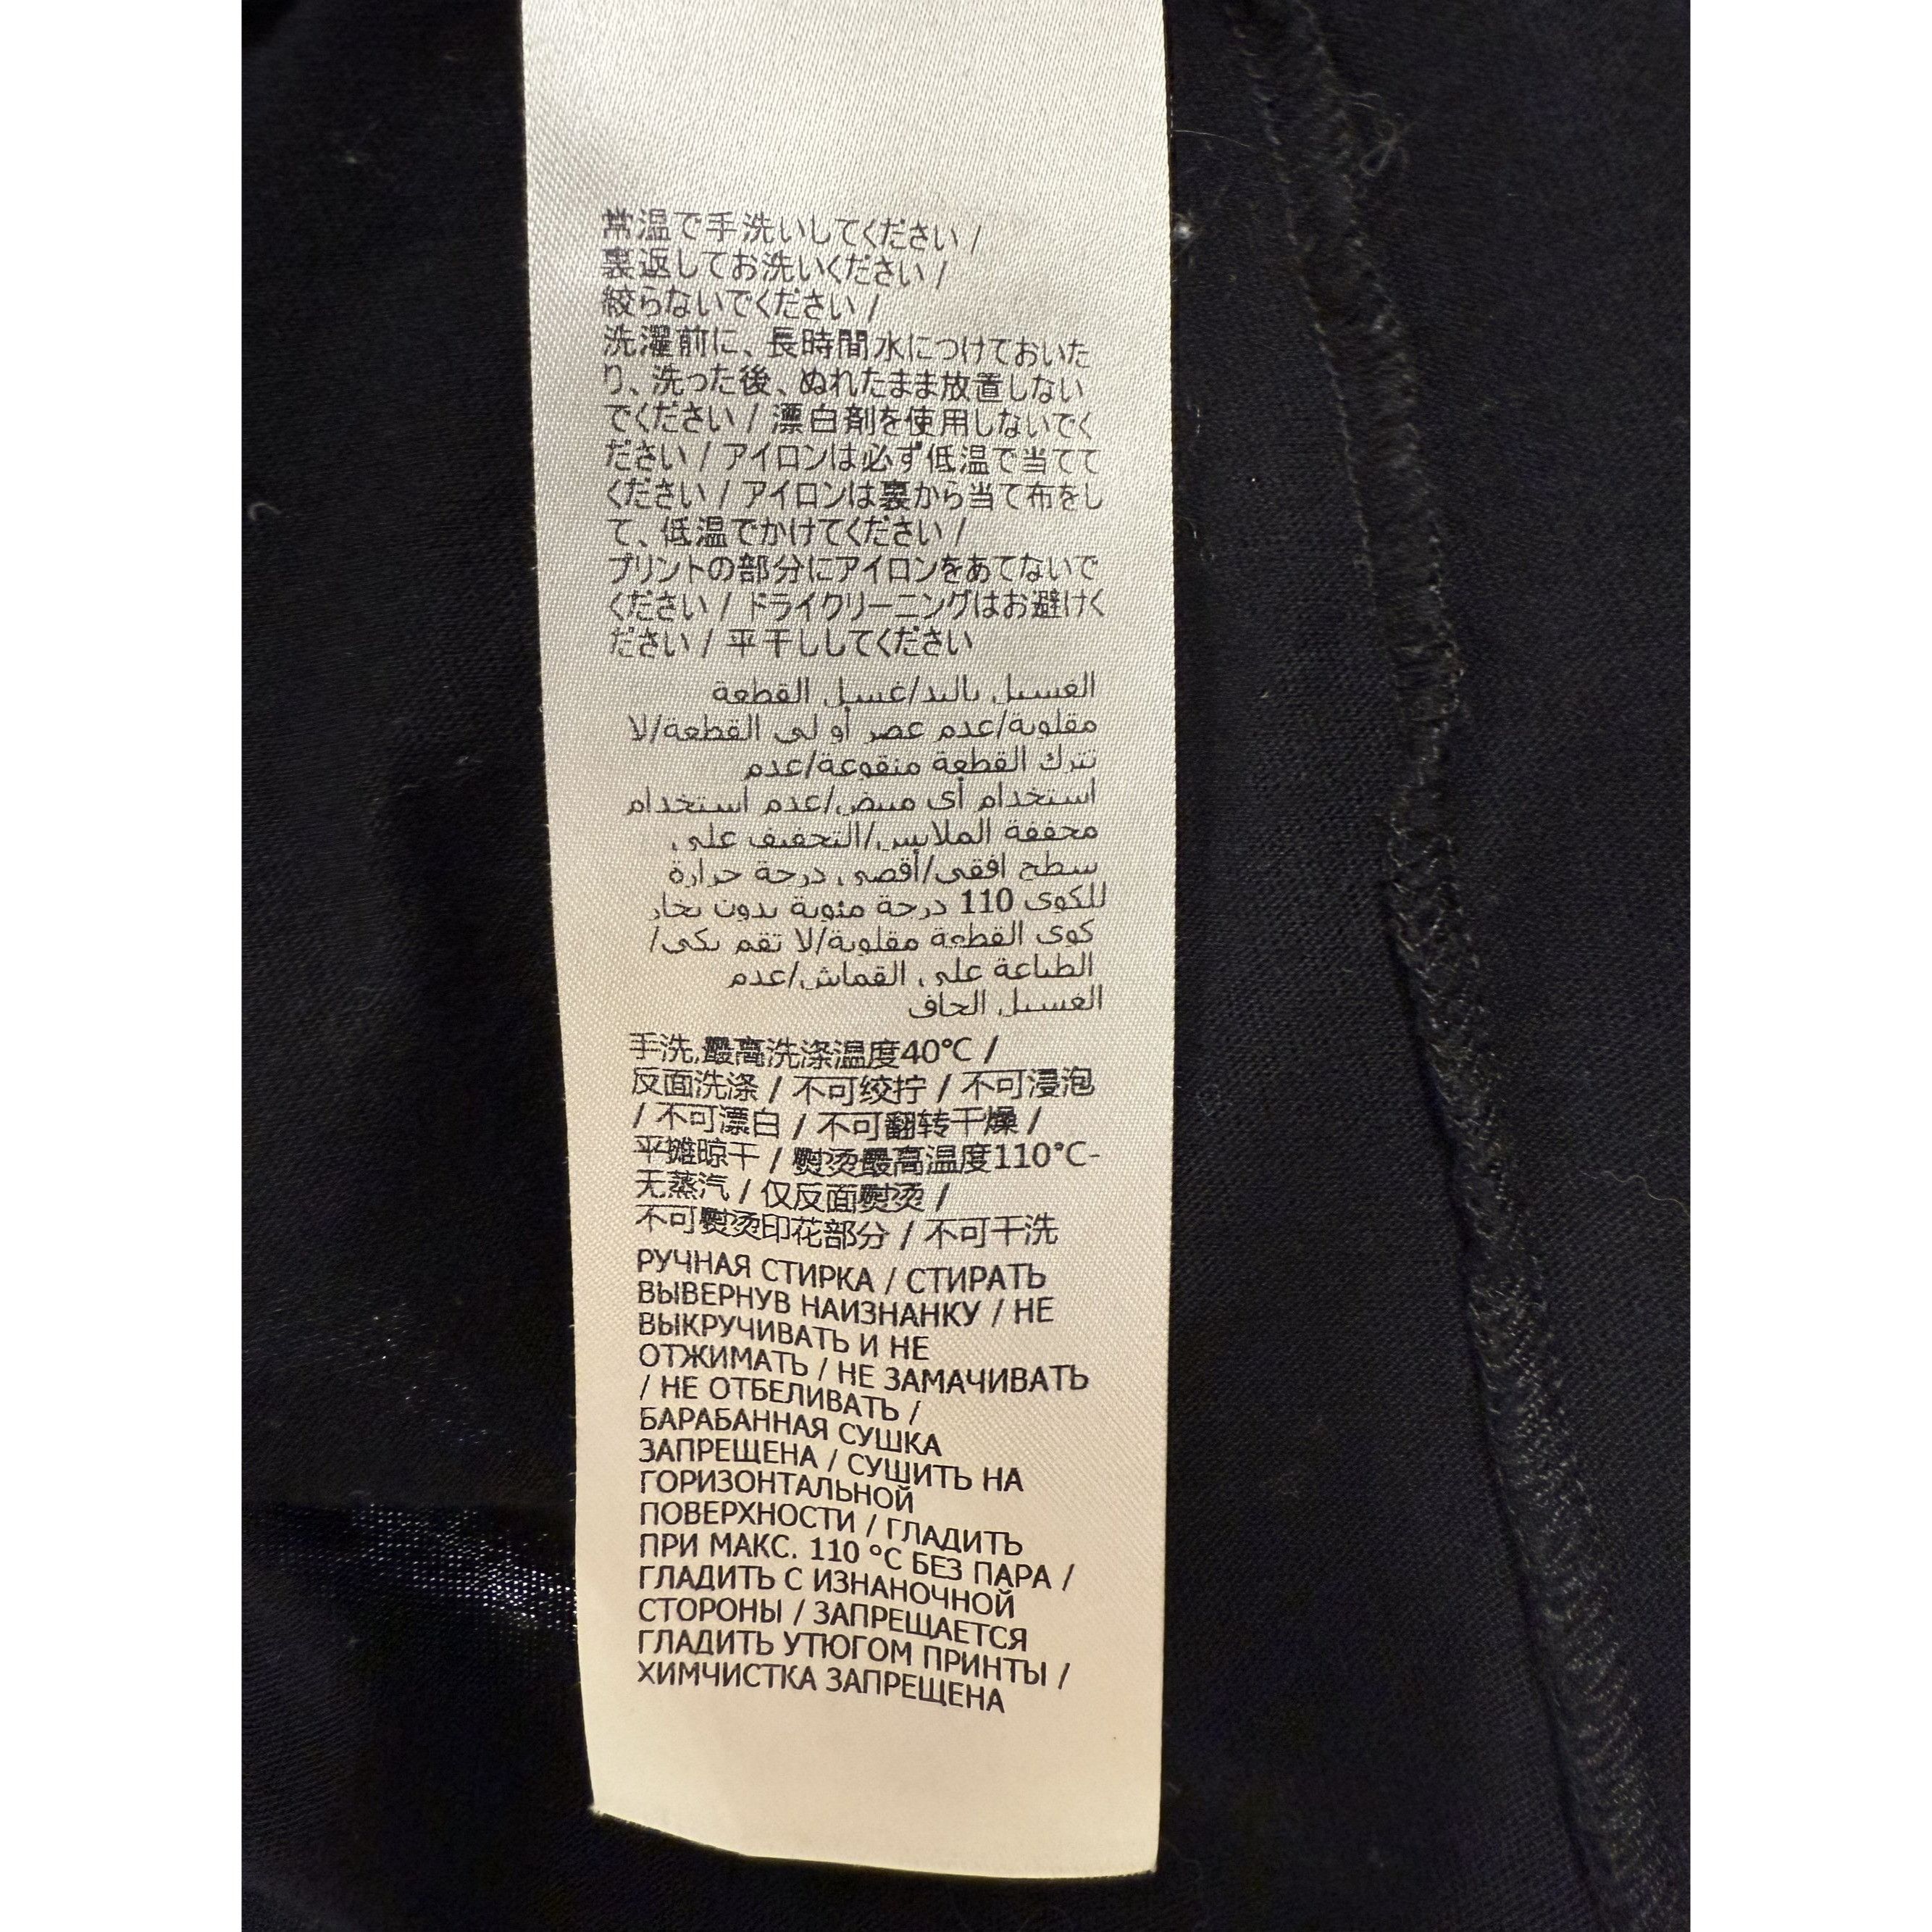 常温で手洗いしてください /
裏返してお洗いください /
絞らないでください /
洗濯前に、長時間水につけておいた
り、洗った後、ぬれたまま放置しない
でください / 漂白剤を使用しないでく
ださい / アイロンは必ず低温で当てて
ください / アイロンは裏から当て布をし
て、低温でかけてください /
プリントの部分にアイロンをあてないで
ください / ドライクリーニングはお避けく
ださい / 平干ししてください
الغسيل باليد/غسيل القطعة
مقلوبة/عدم عصر أو لي القطعة/لا
تترك القطعة منقوعة/عدم
استخدام أي مبيض/عدم استخدام
مجففة الملابس/التجفيف على
سطح افقي/أقصى درجة حرارة
للكوي 110 درجة مئوية بدون بخار
كوي القطعة مقلوبة/لا تقم بكي/
الطباعة على القماش/عدم
الغسيل الجاف
手洗,最高洗涤温度40°C /
反面洗涤 / 不可绞拧 / 不可浸泡
/ 不可漂白 / 不可翻转干燥 /
平摊晾干 / 熨烫最高温度110°C-
无蒸汽 / 仅反面熨烫 /
不可熨烫印花部分 / 不可干洗
РУЧНАЯ СТИРКА / СТИРАТЬ
ВЫВЕРНУВ НАИЗНАНКУ / НЕ
ВЫКРУЧИВАТЬ И НЕ
ОТЖИМАТЬ / НЕ ЗАМАЧИВАТЬ
/ НЕ ОТБЕЛИВАТЬ /
БАРАБАННАЯ СУШКА
ЗАПРЕЩЕНА / СУШИТЬ НА
ГОРИЗОНТАЛЬНОЙ
ПОВЕРХНОСТИ / ГЛАДИТЬ
ПРИ МАКС. 110 °C БЕЗ ПАРА /
ГЛАДИТЬ С ИЗНАНОЧНОЙ
СТОРОНЫ / ЗАПРЕЩАЕТСЯ
ГЛАДИТЬ УТЮГОМ ПРИНТЫ /
ХИМЧИСТКА ЗАПРЕЩЕНА